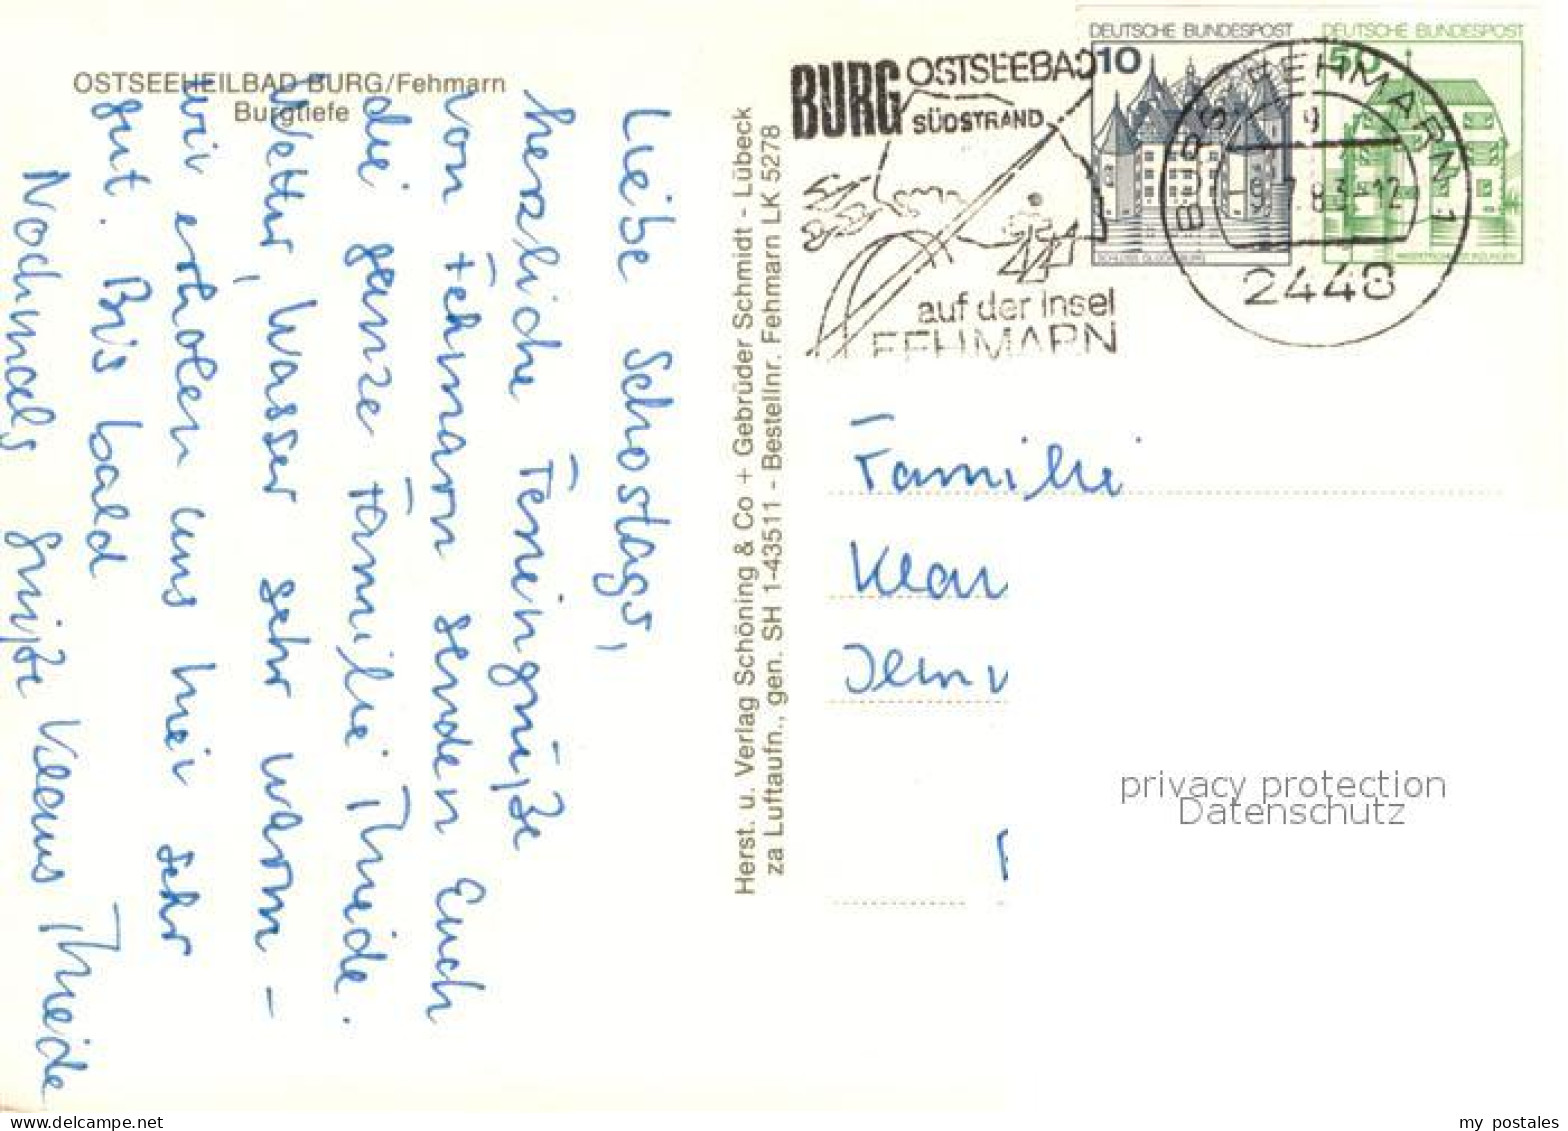 OSTSEEHEILBAD BURG/Fehmarn
Burgtiefe
Liebe Schostags,
herzliche Feriengrüße
von Fehmarn senden Euch
die ganze Familie Thiede.
Wetter, Wasser sehr warm -
wir erholen uns hier sehr
gut. Bis bald
Nochmals Grüße Klaus Thiede
Herst. u. Verlag Schöning & Co + Gebrüder Schmidt - Lübeck
za Luftaufn., gen. SH 1-43511 - Bestellnr. Fehmarn LK 5278
BURG OSTSEEBAD
SÜDSTRAND
auf der Insel
FEHMARN
DEUTSCHE BUNDESPOST
10
SCHLOSS GLÜCKSBURG
DEUTSCHE BUNDESPOST
50
BURG FEHMARN 1
2448
Familie
Klau
privacy protection
Datenschutz
my postales